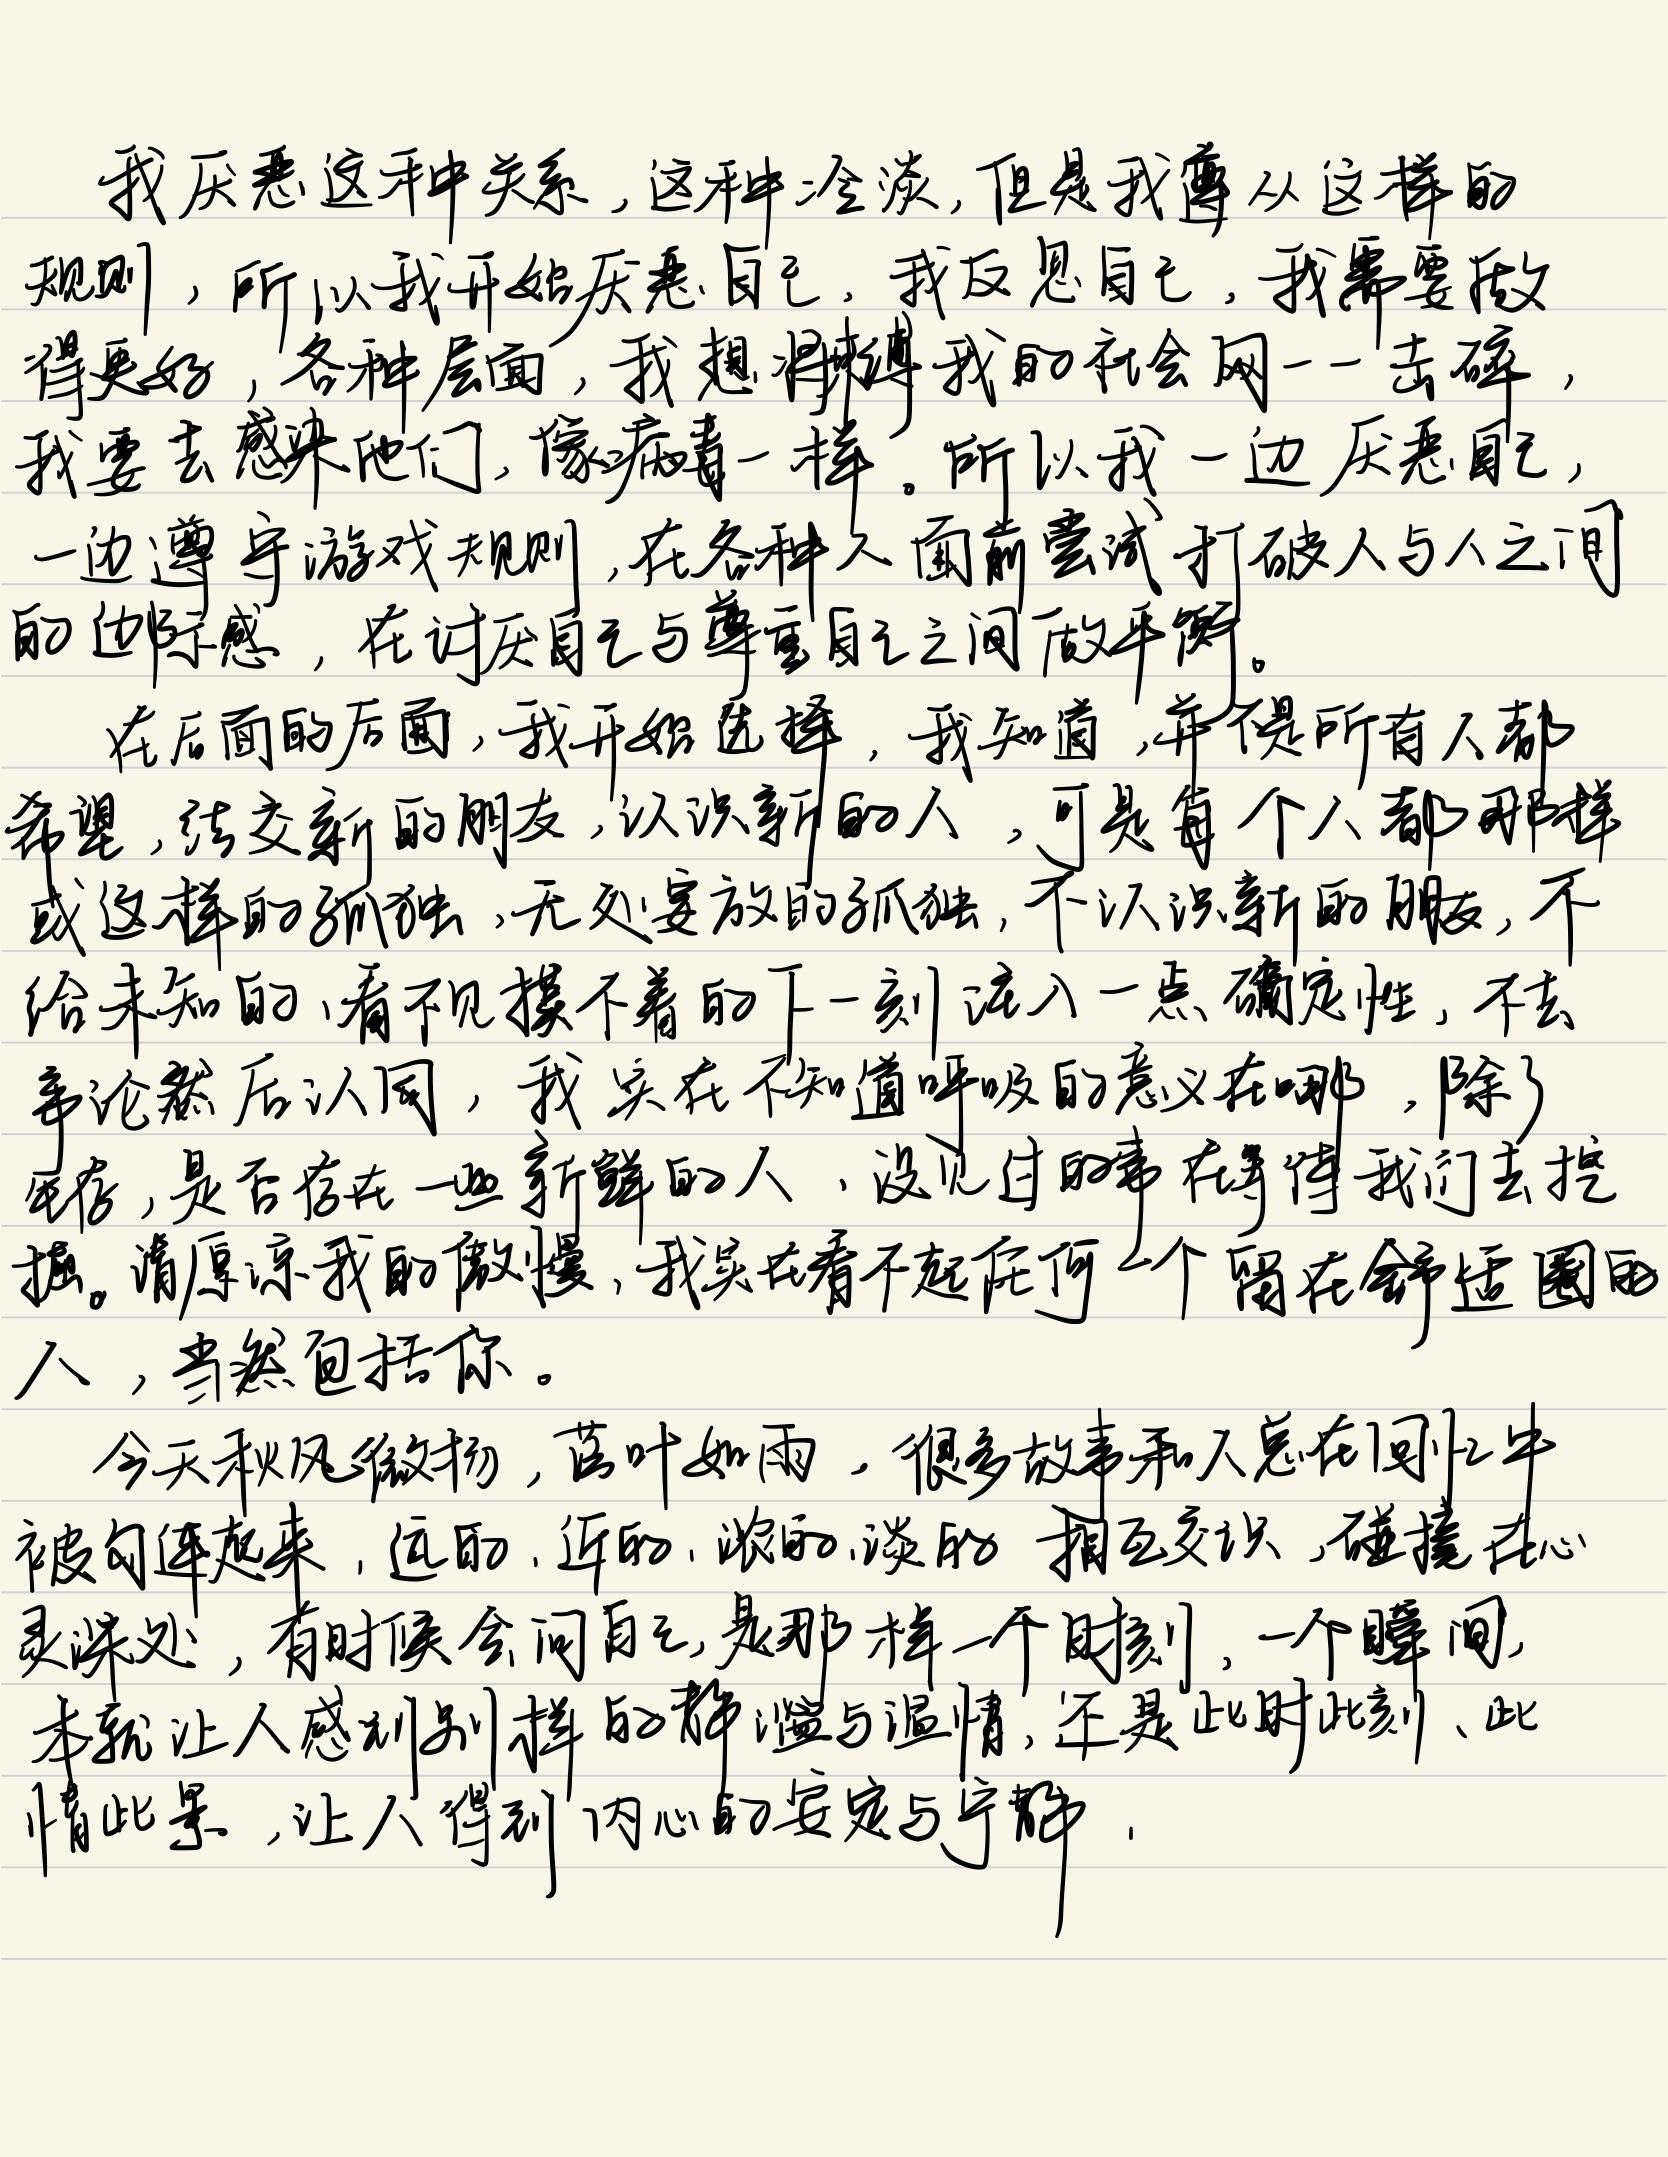 我厌恶这种关系，这种冷淡，但是我尊从这样的
规则，所以我开始厌恶自己，我反思自己，我需要做
得更好，各种层面，我想将束缚我的社会网一一击碎，
我要去感染他们，像病毒一样。所以我一边厌恶自己，
一边遵守游戏规则，在各种人面前尝试打破人与人之间
的边际感，在讨厌自己与尊重自己之间做平衡。
在后面的后面，我开始选择，我知道，并不是所有人都
希望，结交新的朋友，认识新的人，可是每个人都那样
或这样的孤独，无处安放的孤独，不认识新的朋友，不
给未知的、看不见摸不着的下一刻注入一点确定性，不去
争论然后认同，我实在不知道呼吸的意义在哪，除了
生存，是否存在一些新鲜的人、没见过的事在等待我们去挖
掘。请原谅我的傲慢，我实在看不起任何一个留在舒适圈的
人，当然包括你。
今天秋风微扬，落叶如雨，很多故事和人总在回忆中
被勾连起来，远的、近的、浓的、淡的 相互交识，碰撞在心
灵深处，有时候会问自己，是那样一个时刻，一个瞬间，
本就让人感到别样的静谧与温情，还是此时此刻、此
情此景，让人得到内心的安定与宁静，